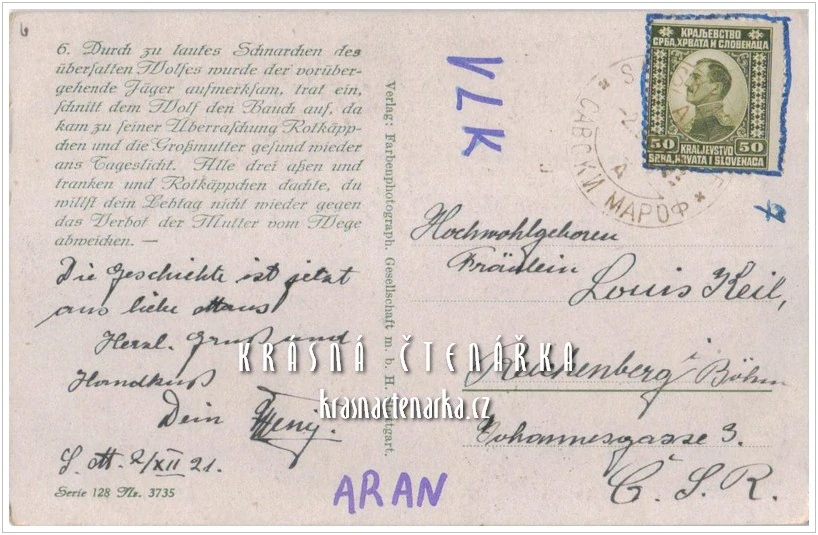 6
6. Durch zu lautes Schnarchen des
übersatten Wolfes wurde der vorüber-
gehende Jäger aufmerksam, trat ein,
schnitt dem Wolf den Bauch auf, da
kam zu seiner Überraschung Rotkäpp-
chen und die Großmutter gesund wieder
ans Tageslicht. Alle drei aßen und
tranken und Rotkäppchen dachte, du
willst dein Lebtag nicht wieder gegen
das Verbot der Mutter vom Wege
abweichen. —
Die Geschichte ist jetzt
aus liebe Maus
Herzl. Gruß und
Handkuß
Dein
S. M. 2/XII 21.
Serie 128 Nr. 3735
Verlag: Farbenphotograph. Gesellschaft m. b. H. Stuttgart.
VLK
ARAN
КРАЉЕВСТВО
СРБА, ХРВАТА И СЛОВЕНАЦА
50 50
KRALJEVSTVO
SRBA, HRVATA I SLOVENACA
САВСКИ МАРОФ
Hochwohlgeboren
Fräulein
Louis Keil,
Reichenberg i Böhm
Johannesgasse 3.
Č. S. R.
KRÁSNÁ ČTENÁŘKA
krasnactenarka.cz